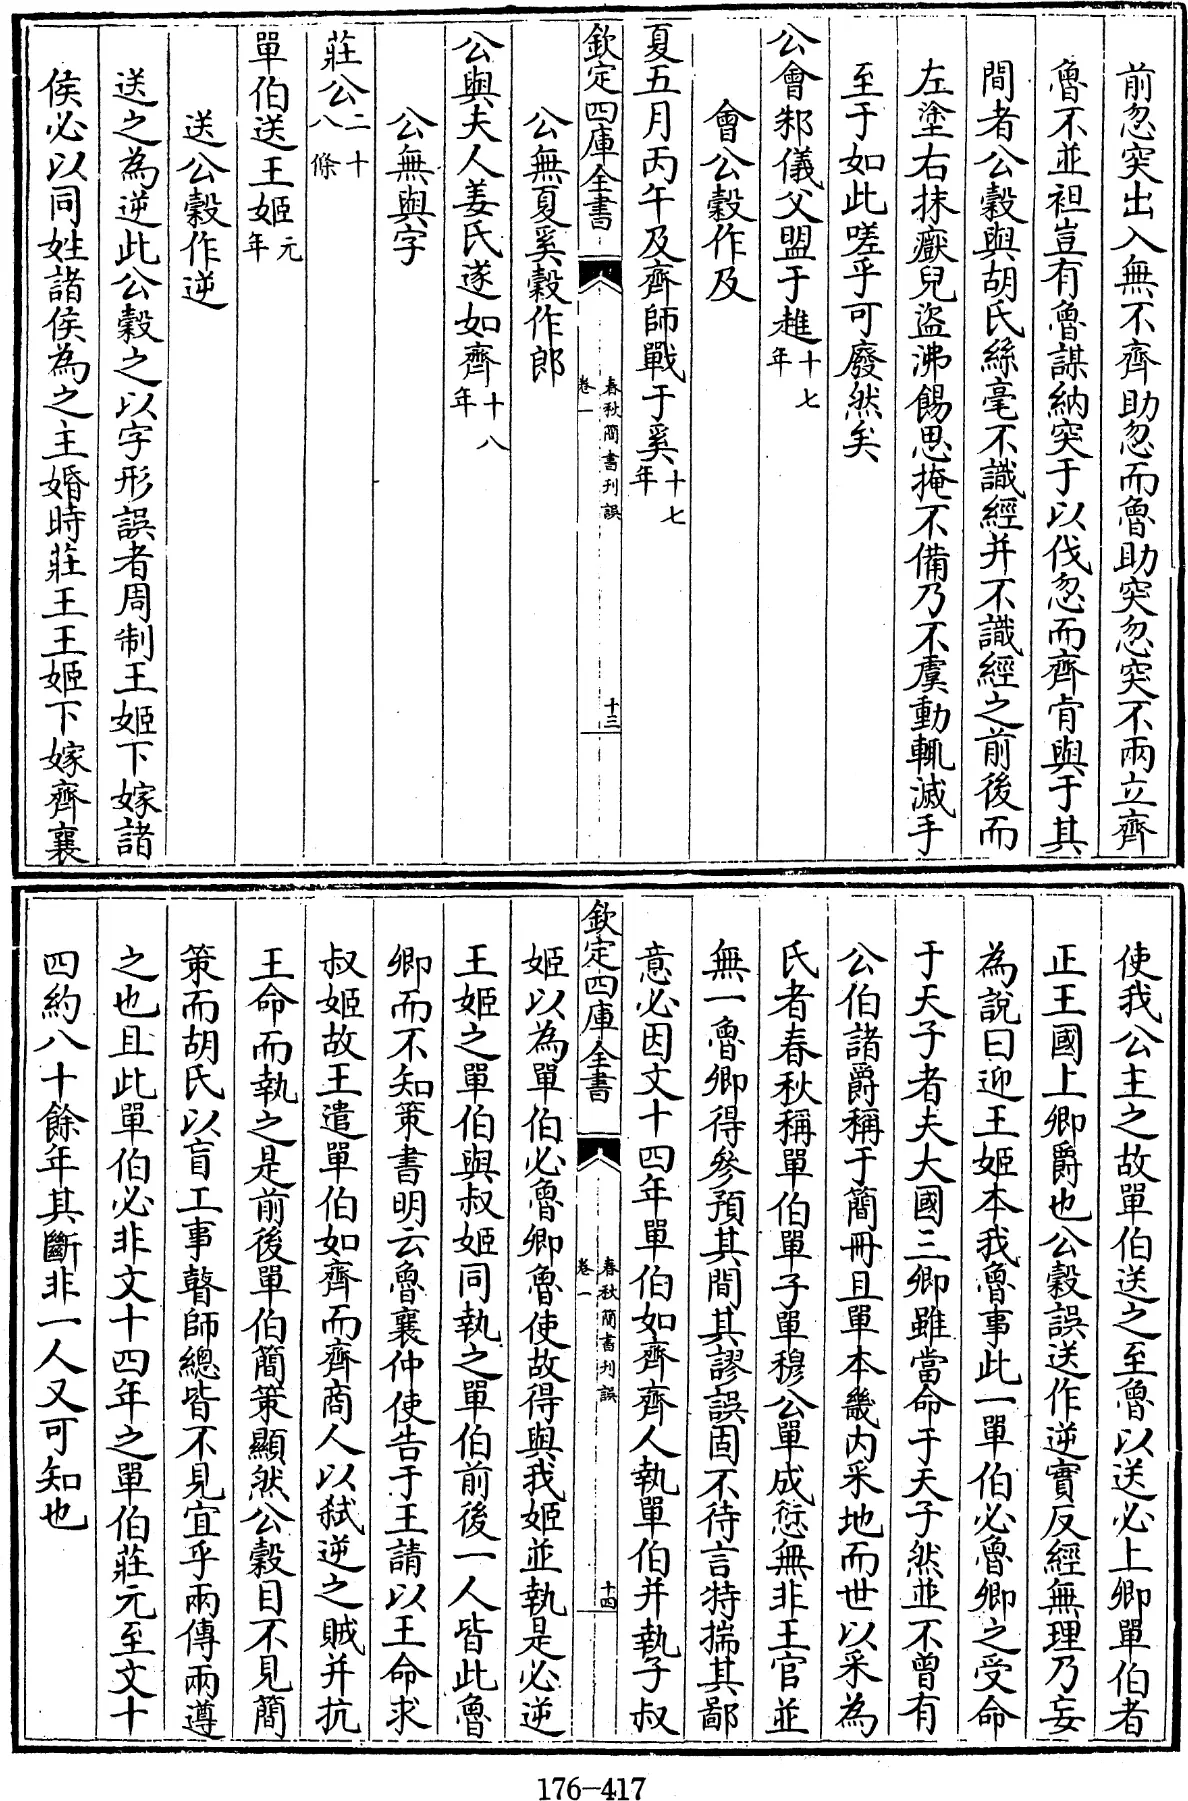 前忽突出入無不齊助忽而魯助突忽突不兩立齊
魯不並袒豈有魯謀納突于以伐忽而齊肯與于其
間者公穀與胡氏絲毫不識經并不識經之前後而
左塗右抹厭兒盜沸餳思掩不備乃不虞動輒滅手
至于如此嗟乎可廢然矣
公會邾儀父盟于趡十七年
會公穀作及
夏五月丙午及齊師戰于奚十七年
欽定四庫全書
春秋簡書刊誤
卷一
十三
公無夏奚穀作郎
公與夫人姜氏遂如齊十八年
公無與字
莊公二十八條
單伯送王姬元年
送公穀作逆
送之為逆此公穀之以字形誤者周制王姬下嫁諸
侯必以同姓諸侯為之主婚時莊王王姬下嫁齊襄
使我公主之故單伯送之至魯以送必上卿單伯者
正王國上卿爵也公穀誤送作逆實反經無理乃妄
為說曰迎王姬本我魯事此一單伯必魯卿之受命
于天子者夫大國三卿雖當命于天子然並不曾有
公伯諸爵稱于簡冊且單本畿內采地而世以采為
氏者春秋稱單伯單子單穆公單成愆無非王官並
無一魯卿得參預其間其謬誤固不待言特揣其鄙
意必因文十四年單伯如齊齊人執單伯并執子叔
欽定四庫全書
春秋簡書刊誤
卷一
十四
姬以為單伯必魯卿魯使故得與我姬並執是必逆
王姬之單伯與叔姬同執之單伯前後一人皆此魯
卿而不知策書明云魯襄仲使告于王請以王命求
叔姬故王遣單伯如齊而齊商人以弒逆之賊并抗
王命而執之是前後單伯簡策顯然公穀目不見簡
策而胡氏以盲工事瞽師總皆不見宜乎兩傳兩遵
之也且此單伯必非文十四年之單伯莊元至文十
四約八十餘年其斷非一人又可知也
176-417